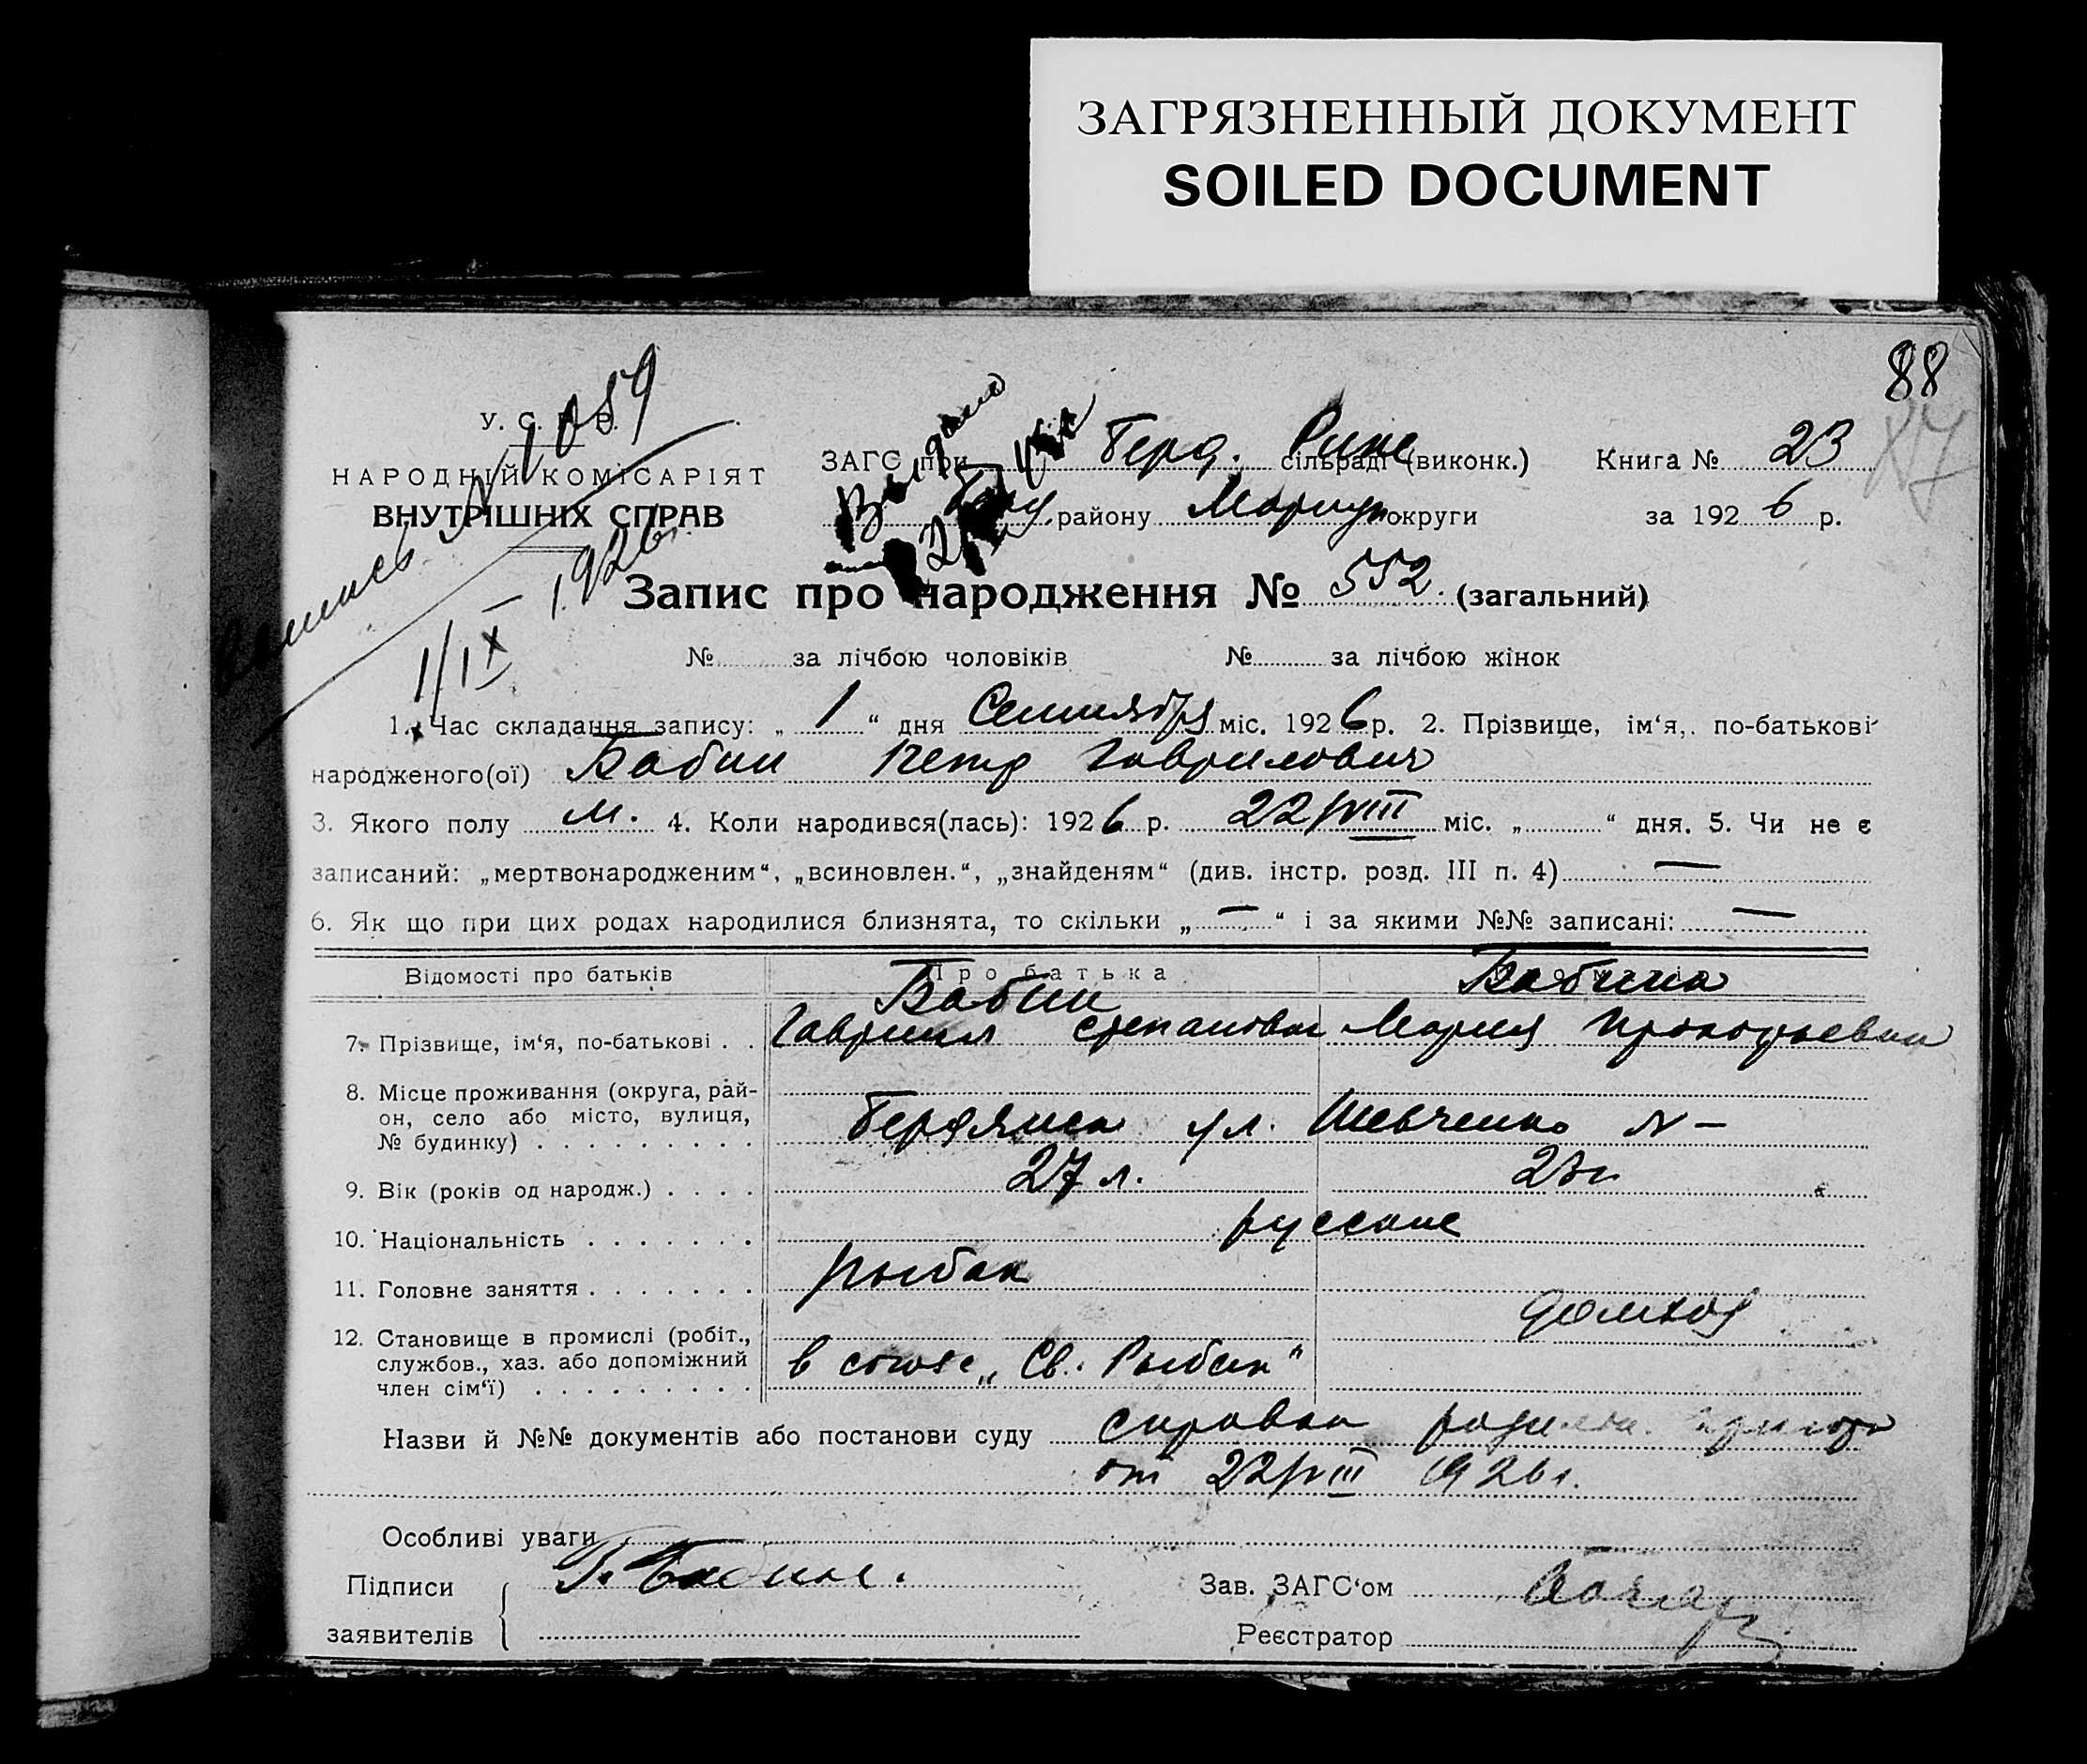 ЗАГРЯЗНЕННЫЙ ДОКУМЕНТ
SOILED DOCUMENT
88
87
У. С. Р. Р.
НАРОДНІЙ КОМІСАРІЯТ
ВНУТРІШНІХ СПРАВ
№ 1059
1/IX – 1926г.
Выдано
ЗАГС при Берд. Рике сільраді (виконк.) Книга № 23
району Мариуп округи за 1926 р.
Запис про народження № 552. (загальний)
№ за лічбою чоловіків № за лічбою жінок
1. Час складання запису: „ 1 “ дня Сентября міс. 1926 р. 2. Прізвище, ім‘я, по-батькові
народженого(ої) Бабин Петр Гаврилович
3. Якого полу м. 4. Коли народився(лась): 1926 р. 22/VIII міс. „ “ дня. 5. Чи не є
записаний: „мертвонародженим“, „всиновлен.“, „знайденям“ (див. інстр. розд. III п. 4) —
6. Як що при цих родах народилися близнята, то скільки „ — “ і за якими №№ записані: —
Відомості про батьків Про батька
Бабин Бабина
7. Прізвище, ім‘я, по-батькові . . Гавриил Степанович Мария Прокофьевна
8. Місце проживання (округа, рай-
он, село або місто, вулиця,
№ будинку) . . . . . . . . . Бердянск ул. Шевченко № –
9. Вік (років од народж.) . . . . 27 л.
10. Національність . . . . . . . русские
11. Головне заняття . . . . . . . рыбак
домхоз
12. Становище в промислі (робіт.,
службов., хаз. або допоміжний
член сім‘ї) . . . . . . . . . в союзе „Св. Рыбак“
Назви й №№ документів або постанови суду справка родильн. приюта
от 22/VIII 1926г.
Особливі уваги
Підписи Г. Бабин. Зав. ЗАГС‘ом
заявителів Реєстратор